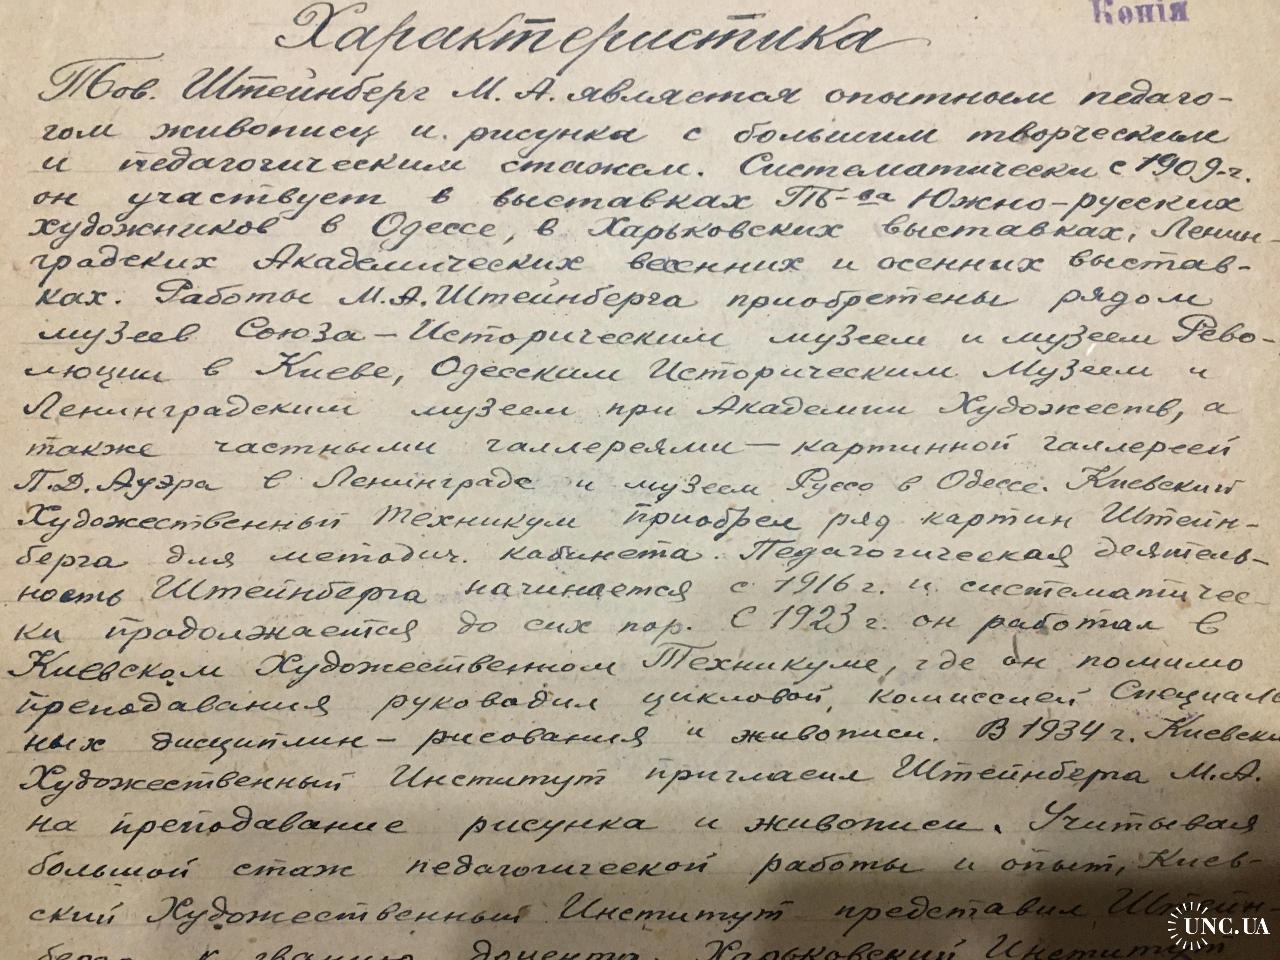 Копія
Характеристика
Тов. Штейнберг М. А. является опытным педаго-
гом живописи и рисунка с большим творческим
и педагогическим стажем. Систематически с 1909-г.
он участвует в выставках Т-ва Южно-русских
художников в Одессе, в Харьковских выставках, Ленин-
градских Академических весенних и осенних выстав-
ках. Работы М.А.Штейнберга приобретены рядом
музеев Союза – Историческим музеем и музеем Рево-
люции в Киеве, Одесским Историческим Музеем и
Ленинградским музеем при Академии Художеств, а
также частными галлереями – картинной галлереей
П.Д.Ауэра в Ленинграде и музеем Руссо в Одессе. Киевский
Художественный Техникум приобрел ряд картин Штейн-
берга для методич. кабинета. Педагогическая деятель-
ность Штейнберга начинается с 1916 г. и систематичес-
ки продолжается до сих пор. С 1923 г. он работал в
Киевском Художественном Техникуме, где он помимо
преподавания руководил цикловой комиссией Специаль
ных дисциплин – рисования и живописи. В 1934 г. Киевски
Художественный Институт пригласил Штейнберга М.А.
на преподавание рисунка и живописи. Учитывая
большой стаж педагогической работы и опыт, Киев-
ский Художественный Институт представил Штейн-
берга к званию доцента. Харьковский Институт
UNC.UA